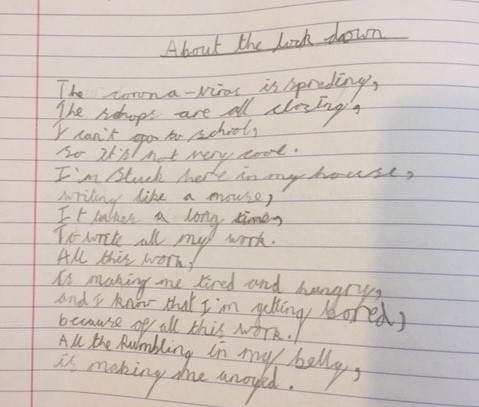 About the lock down
The corona-viros is spreding,
The schops are all closing,
I can't go to school,
so It's not very cool.
I'm stuck here in my house,
writing like a mouse,
It takes a long time,
To write all my work.
All this work,
Is making me tired and hungry,
and I know that I'm getting bored,
because of all this work.
All the Rumbling in my belly,
is making me anoyed.